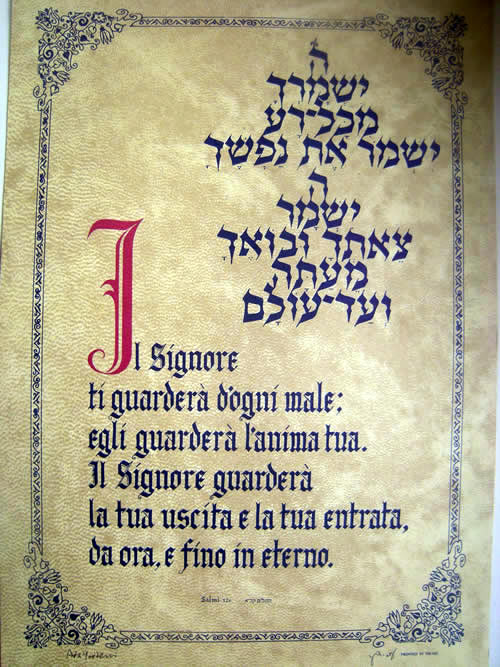 ה
ישמרך
מכל־רע
ישמר את נפשך
ה
ישמר
צאתך ובואך
מעתה
ועד־עולם
Il Signore
ti guarderà d'ogni male;
egli guarderà l'anima tua.
Il Signore guarderà
la tua uscita e la tua entrata,
da ora, e fino in eterno.
Salmi 121 תהלים קכ״א
PRINTED IN ISRAEL